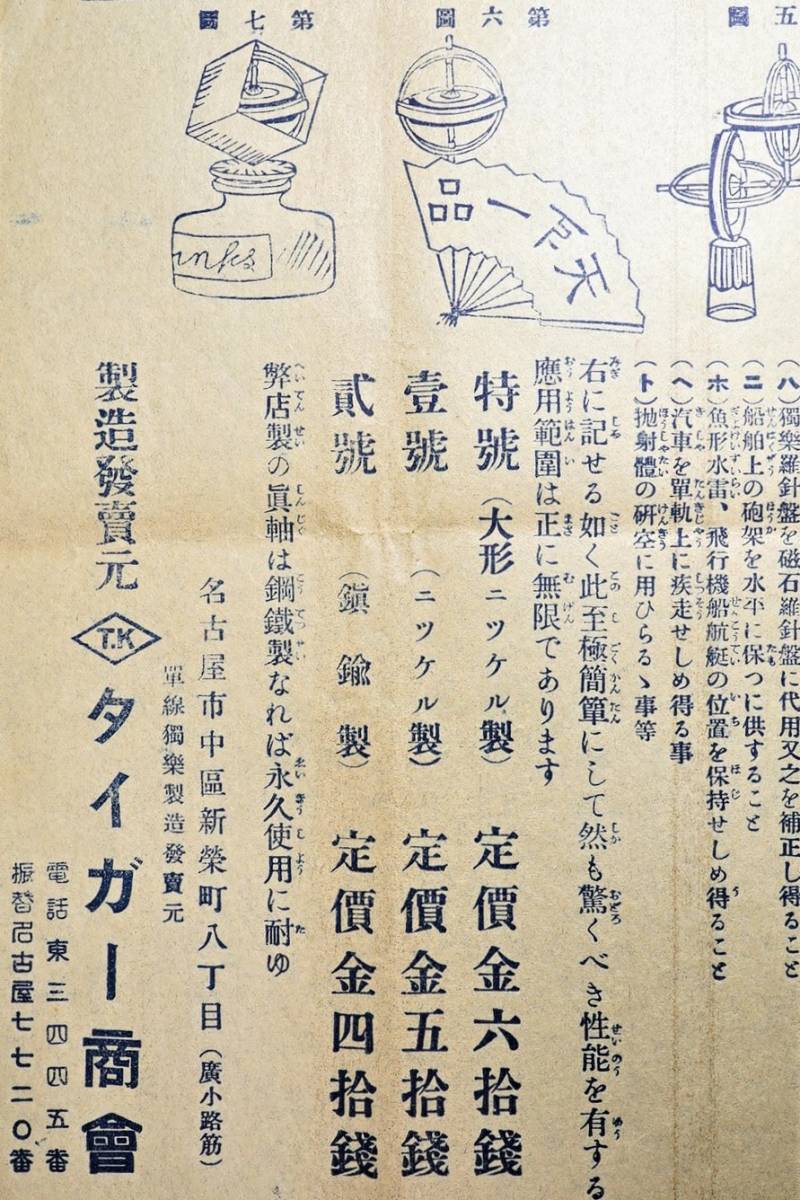 五圖
第六圖
第七圖
天下一品
inks
(ハ)獨樂羅針盤を磁石羅針盤に代用又之を補正し得ること
(ニ)船舶上の砲架を水平に保つに供すること
(ホ)魚形水雷、飛行機船航艇の位置を保持せしめ得ること
(ヘ)汽車を單軌上に疾走せしめ得る事
(ト)抛射體の硏空に用ひらるゝ事等
右に記せる如く此至極簡單にして然も驚くべき性能を有する
應用範圍は正に無限であります
特號(大形ニツケル製)定價金六拾錢
壹號(ニツケル製)定價金五拾錢
貳號(鎭鍮製)定價金四拾錢
弊店製の眞軸は鋼鐵製なれば永久使用に耐ゆ
名古屋市中區新榮町八丁目(廣小路筋)
單線獨樂製造發賣元
製造發賣元 T.K タイガー商會
電話東三四四五番
振替名古屋七七二〇番